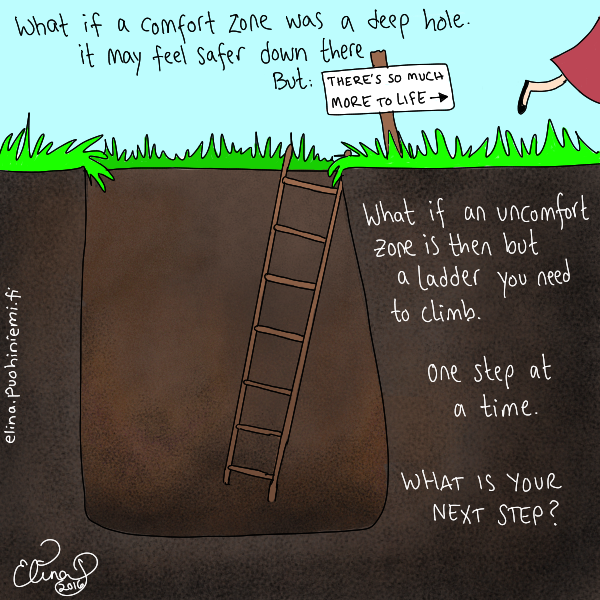 What if a comfort zone was a deep hole.
it may feel safer down there
But:
THERE'S SO MUCH
MORE TO LIFE →
What if an uncomfort
zone is then but
a ladder you need
to climb.
one step at
a time.
WHAT IS YOUR
NEXT STEP?
elina.puohiniemi.fi
Elina P
2016